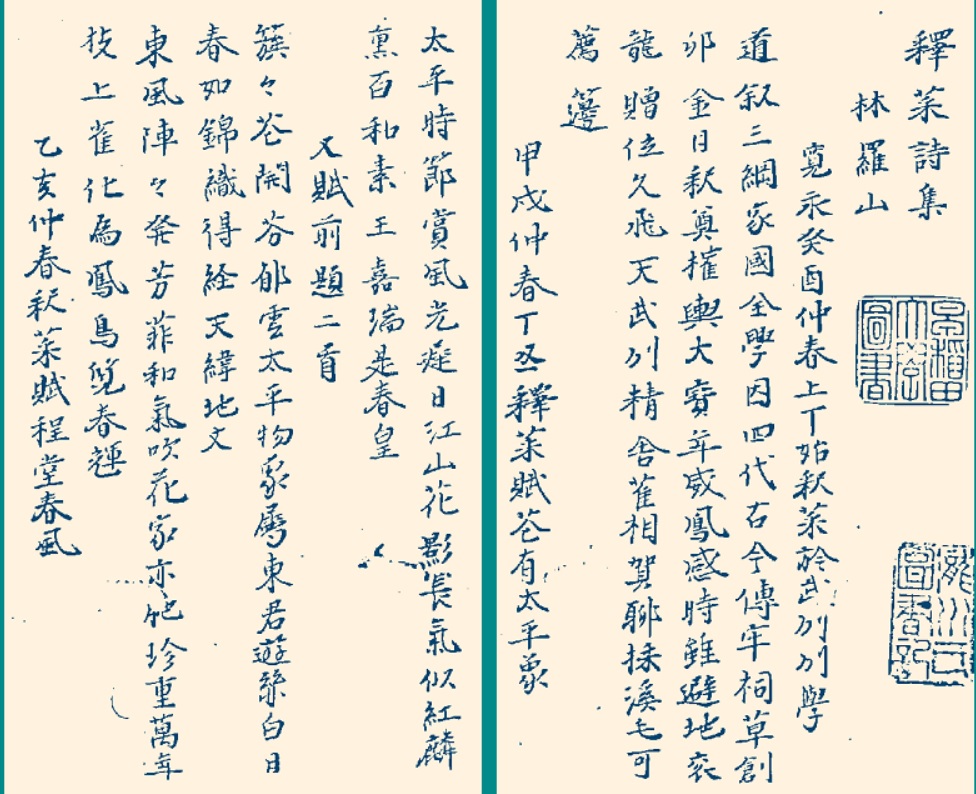 釋菜詩集
林羅山
寛永癸酉仲春上丁始釈菜於武列別學
道叙三綱家國全學因四代古今傳牢祠草創
卯金日釈奠権輿大寶年威鳳感時雖避地袞
龍贈位久飛天武列精舎雀相賀聊採溪毛可
薦籩
甲戌仲春丁丑釋菜賦花有太平象
太平時節賞風光遅日江山花影長氣似紅麟
熏百和素王嘉瑞是春皇
又賦前題二首
簇々花開谷郁雲太平物象属東君遊絲白日
春如錦織得経天緯地文
東風陣々発芳菲和氣吹花象亦肥珍重萬年
枝上雀化為鳳鳥覧春輝
乙亥仲春釈菜賦程堂春風